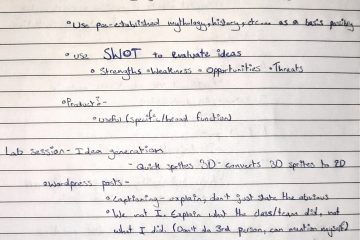 • Use pre-established mythology, history, etc... as a basis
• use SWOT to evaluate ideas
• Strengths • Weakness • Opportunities • Threats
• Product:-
• Useful (specific/broad function)
Lab session - Idea generation
- Quick sprites 3D - converts 3D sprites to 2D
• Wordpress posts -
• Captioning - explain, don't just state the obvious
• We not I. Explain what the class/team did, not
what I did. (Don't do 3rd person, can mention myself)